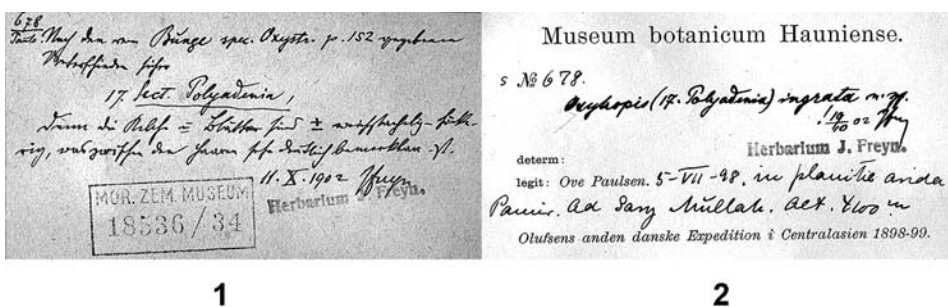 678
Pauls. Nach den von Bunge spec. Oxytr. p. 152 gegebenen
Unterschieden sicher
17. Sect. Polyadenia,
Denn die Kelche = Blätter sind ±
rig, was zwischen den Haaren sehr deutlich bemerkbar ist.
11. X. 1902 Freyn
Herbarium J. Freyn.
MOR. ZEM. MUSEUM
18536/34
1
Museum botanicum Hauniense.
s № 678.
Oxytropis (17. Polyadenia) ingrata n. sp.
! 19/10 02 Freyn
Herbarium J. Freyn.
determ:
legit: Ove Paulsen. 5-VII-98, in planitie arida
Pamir. Ad Sary Mullah. Alt. 4100 m
Olufsens anden danske Expedition i Centralasien 1898-99.
2